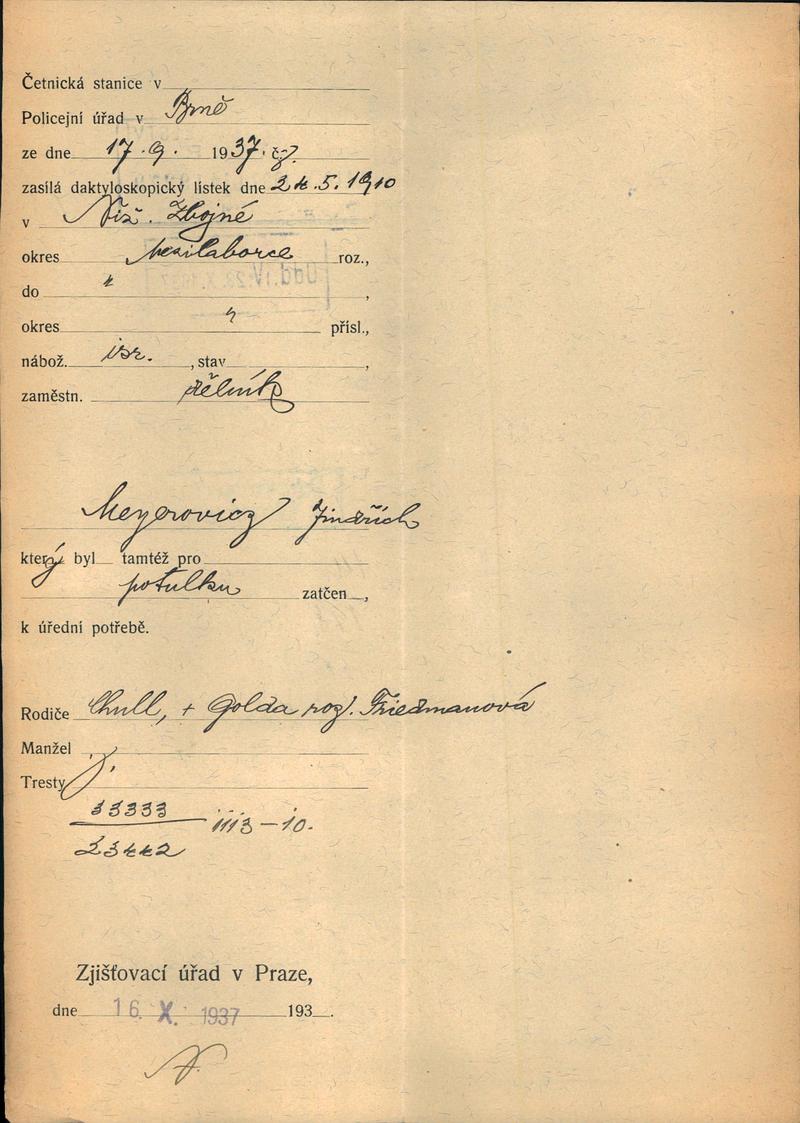 Četnická stanice v
Policejní úřad v Brně
ze dne 17.9. 1937. čj.
zasílá daktyloskopický lístek dne 24.5.1910
v Niž. Zbojné
okres Mezilaborce roz.,
do "
,
okres " přísl.,
nábož. isr. , stav ,
zaměstn. dělník
Meyerovicz Jindřich
který byl tamtéž pro
potulku zatčen ,
k úřední potřebě.
Rodiče Chull, + Golda roz. Friedmanová
Manžel
Tresty
33333 iii3-10.
23442
Zjišťovací úřad v Praze,
dne 16. X. 1937 193 .